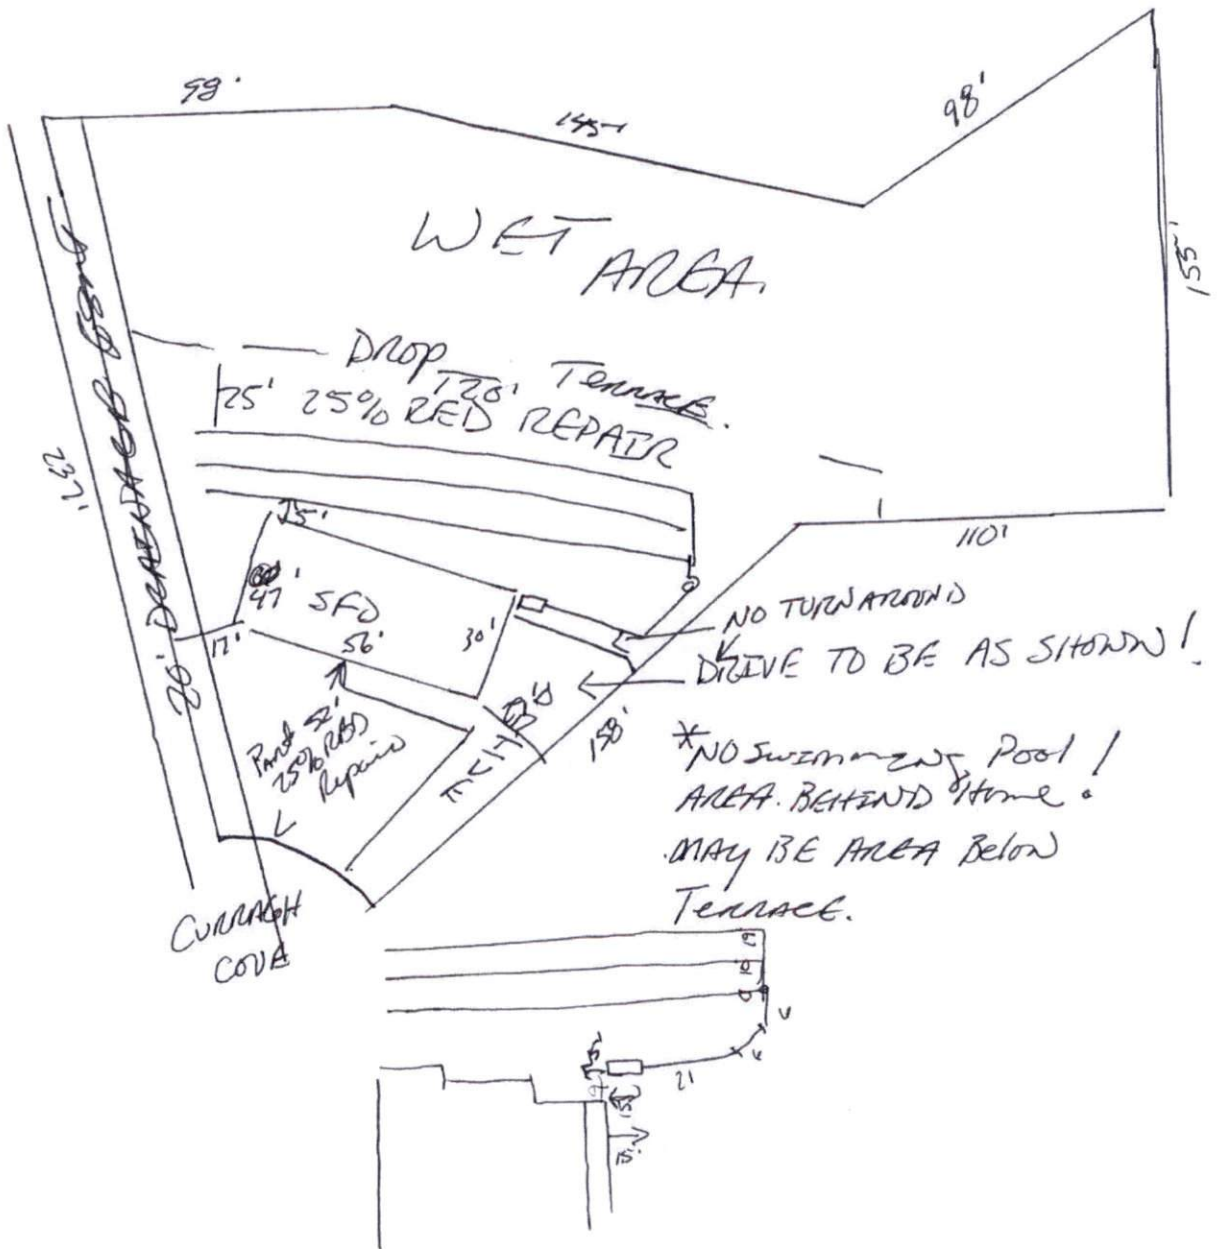 98'
145'
98'
155'
WET
AREA.
DROP
TERRACE.
120'
25' 25% RED REPAIR
232'
20' DRAINAGE ESMT
110'
25'
47' SFD
17'
56'
30'
NO TURNAROUND
DRIVE TO BE AS SHOWN!
158'
25% RED
Repair
*NO SWIMMING Pool!
AREA. BEHIND Home.
MAY BE AREA Below
TERRACE.
CURRAGH
COVE
21